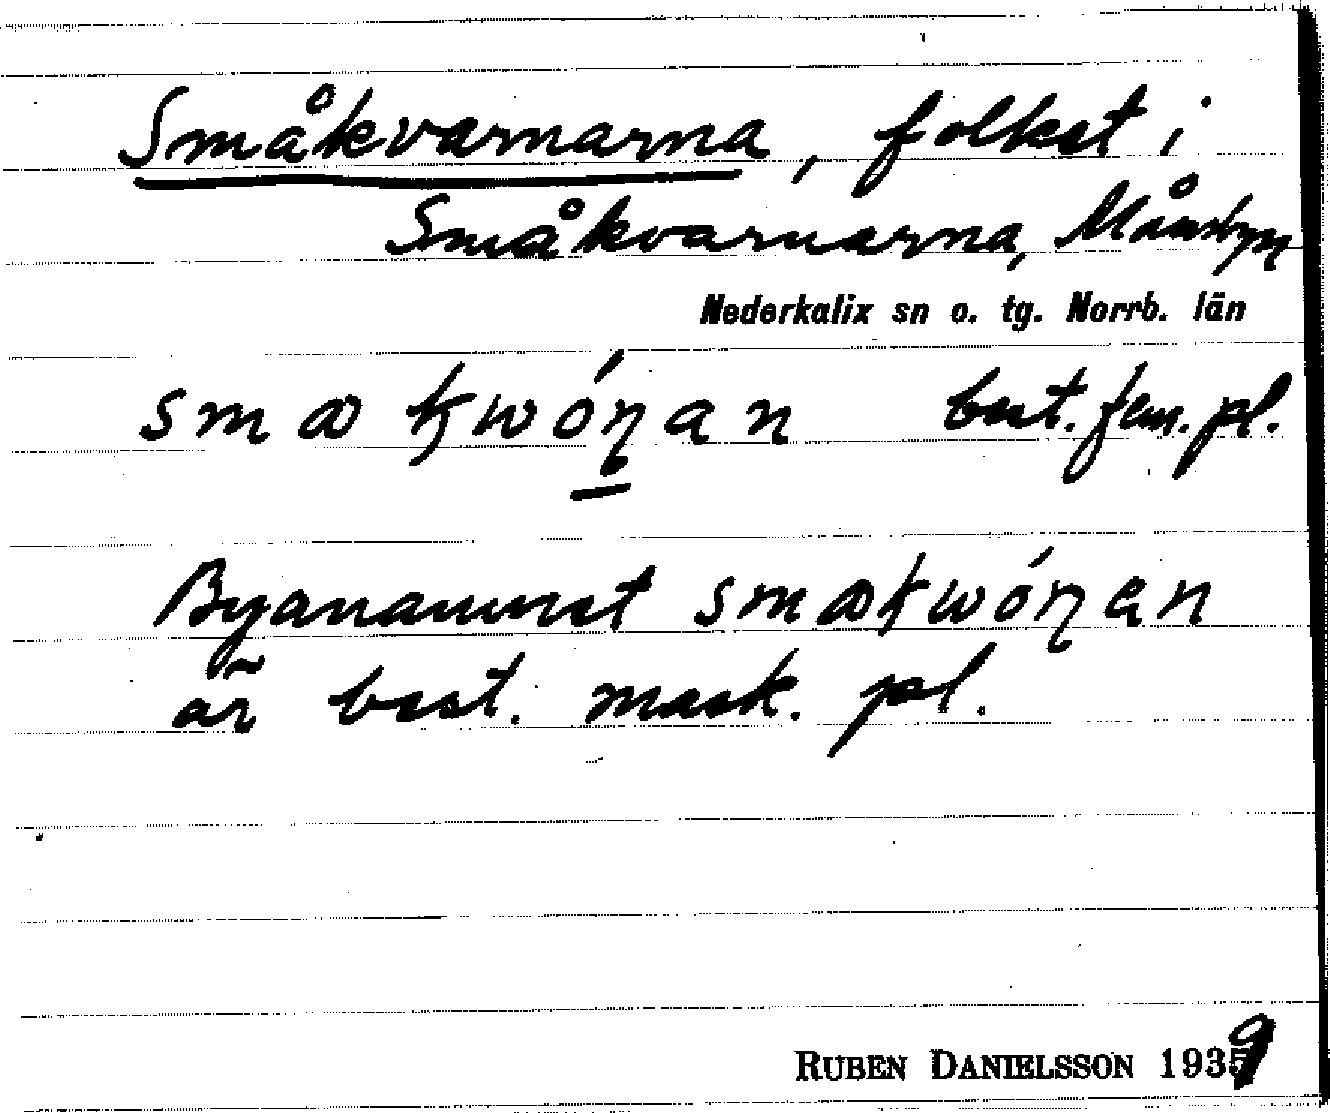 Småkvarnarna, folket i
Småkvarnarna, Månsbyn
Nederkalix sn o. tg. Norrb. län
best. fem. pl.
Byanamnet
är best. mask. pl.
RUBEN DANIELSSON 1939